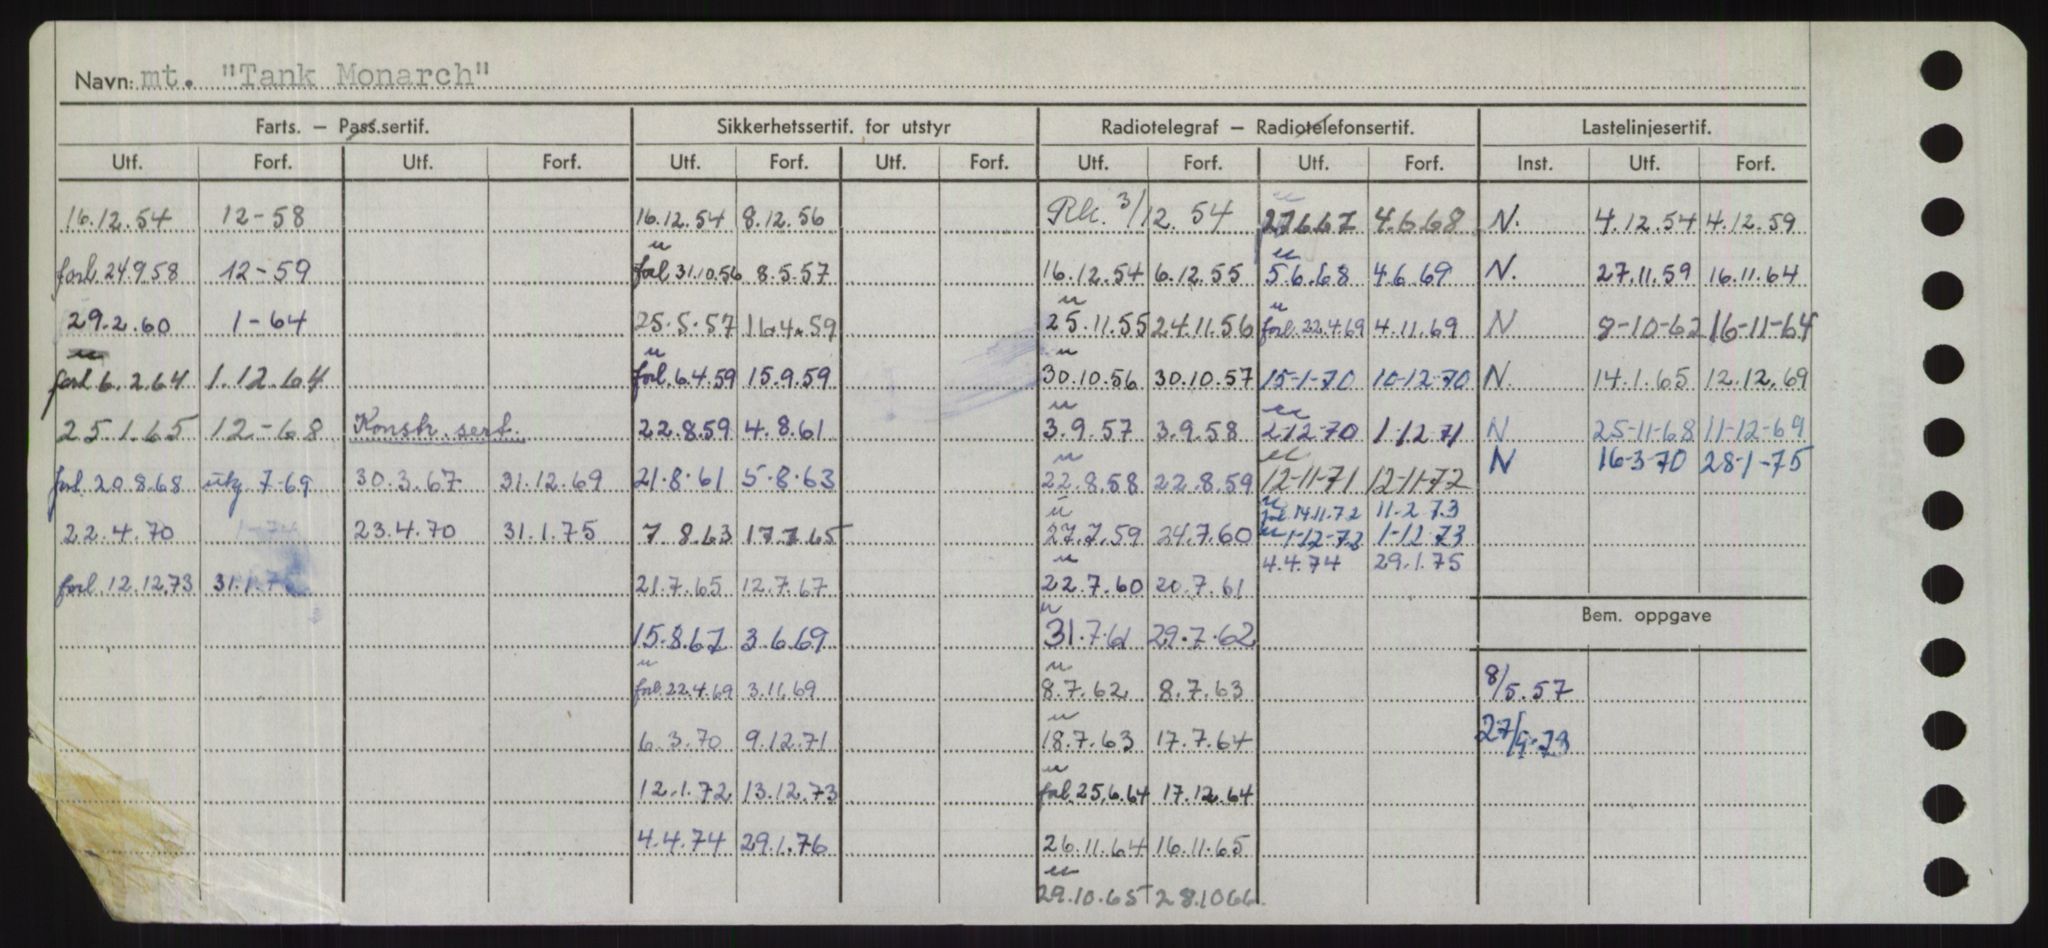 Navn: mt. "Tank Monarch"
Farts. – Pass.sertif. Sikkerhetssertif. for utstyr Radiotelegraf – Radiotelefonsertif. Lastelinjesertif.
Utf. Forf. Utf. Forf. Utf. Forf. Utf. Forf. Utf. Forf. Utf. Forf. Inst. Utf. Forf.
16.12.54 12-58 16.12.54 8.12.56 Rk. 3/12.54 4.6.68 N. 4.12.54 4.12.59
forl 24.9.58 12-59 forl 31.10.56 8.5.57 16.12.54 6.12.55 5.6.68 4.6.69 N. 27.11.59 16.11.64
29.2.60 1-64 25.5.57 16.4.59 25.11.55 24.11.56 forl. 22.4.69 4.11.69 N 8-10-62 16-11-64
forl 6.2.64 1.12.64 forl. 6.4.59 15.9.59 30.10.56 30.10.57 15-1-70 10-12-70 N. 14.1.65 12.12.69
25.1.65 12-68 Konstr. sert. 22.8.59 4.8.61 3.9.57 3.9.58 2-12-70 1-12-71 N 25-11-68 11-12-69
N 16-3-70 28-1-75
forl 20.8.68 utg 7-69 30.3.67 31.12.69 21.8.61 5.8.63 22.8.58 22.8.59 12-11-71 12-11-72
forl 14.11.72 11-2-73
22.4.70 1-74 23.4.70 31.1.75 7.8.63 17.7.65 27.7.59 24.7.60 1-12-72 1-12-73
4.4.74 29.1.75
forl. 12.12.73 31.1. 21.7.65 12.7.67 22.7.60 20.7.61
Bem. oppgave
15.8.67 3.6.69 31.7.61 29.7.62
forl. 22.4.69 3.11.69 8.7.62 8.7.63 8/5.57
6.3.70 9.12.71 18.7.63 17.7.64
12.1.72 13.12.73 forl. 25.6.64 17.12.64
4.4.74 29.1.76 26.11.64 16.11.65
29.10.65 28.10.66